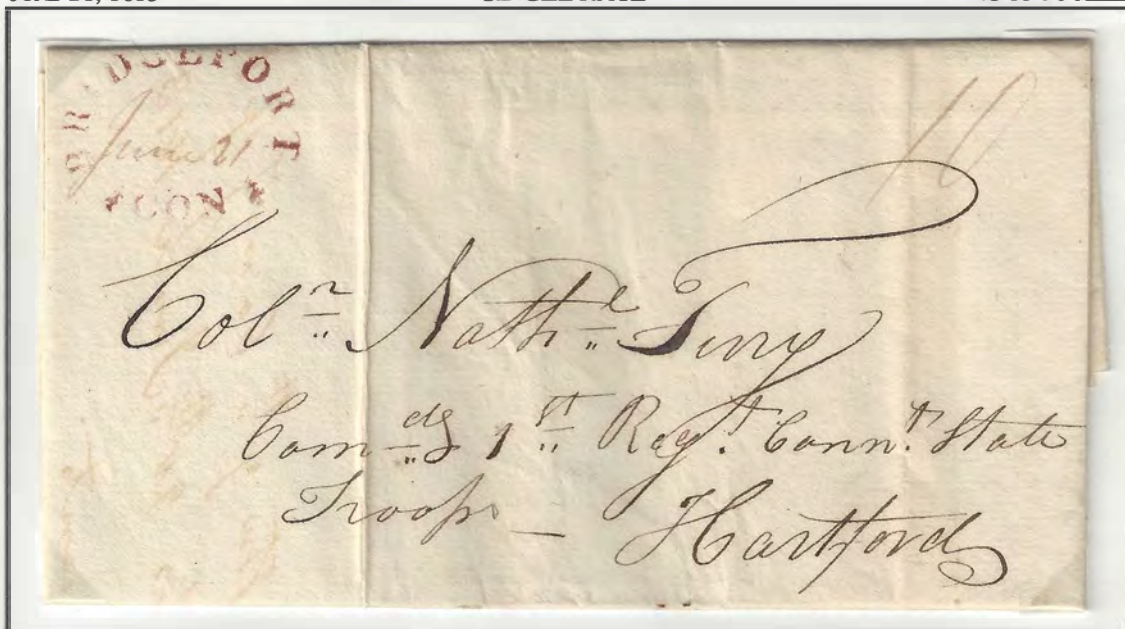 BRIDGEPORT
June 21
CON
10
Col.n Nath.l Terry
Com.dg 1st Reg.t Conn.t State
Troops _ Hartford